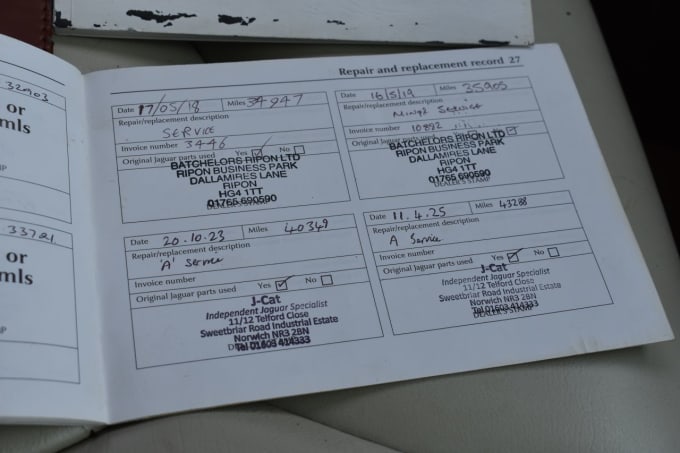 32903
or
mls
33721
or
mls
Repair and replacement record 27
Date 17/05/18 Miles 34947
Repair/replacement description
SERVICE
Invoice number 3446
Original Jaguar parts used Yes No
BATCHELORS RIPON LTD
RIPON BUSINESS PARK
DALLAMIRES LANE
RIPON
HG4 1TT
01765 690590
DEALER'S STAMP
Date 16/5/19 Miles 35905
Repair/replacement description
Minor Service
Invoice number 10892
Original Jaguar parts used
BATCHELORS RIPON LTD
RIPON BUSINESS PARK
DALLAMIRES LANE
RIPON
HG4 1TT
01765 690590
DEALER'S STAMP
Date 20.10.23 Miles 40349
Repair/replacement description
'A' Service
Invoice number
Original Jaguar parts used Yes No
J-Cat
Independent Jaguar Specialist
11/12 Telford Close
Sweetbriar Road Industrial Estate
Norwich NR3 2BN
Tel 01603 414333
DEALER'S STAMP
Date 11.4.25 Miles 43288
Repair/replacement description
A Service
Invoice number
Original Jaguar parts used Yes No
J-Cat
Independent Jaguar Specialist
11/12 Telford Close
Sweetbriar Road Industrial Estate
Norwich NR3 2BN
Tel 01603 414333
DEALER'S STAMP